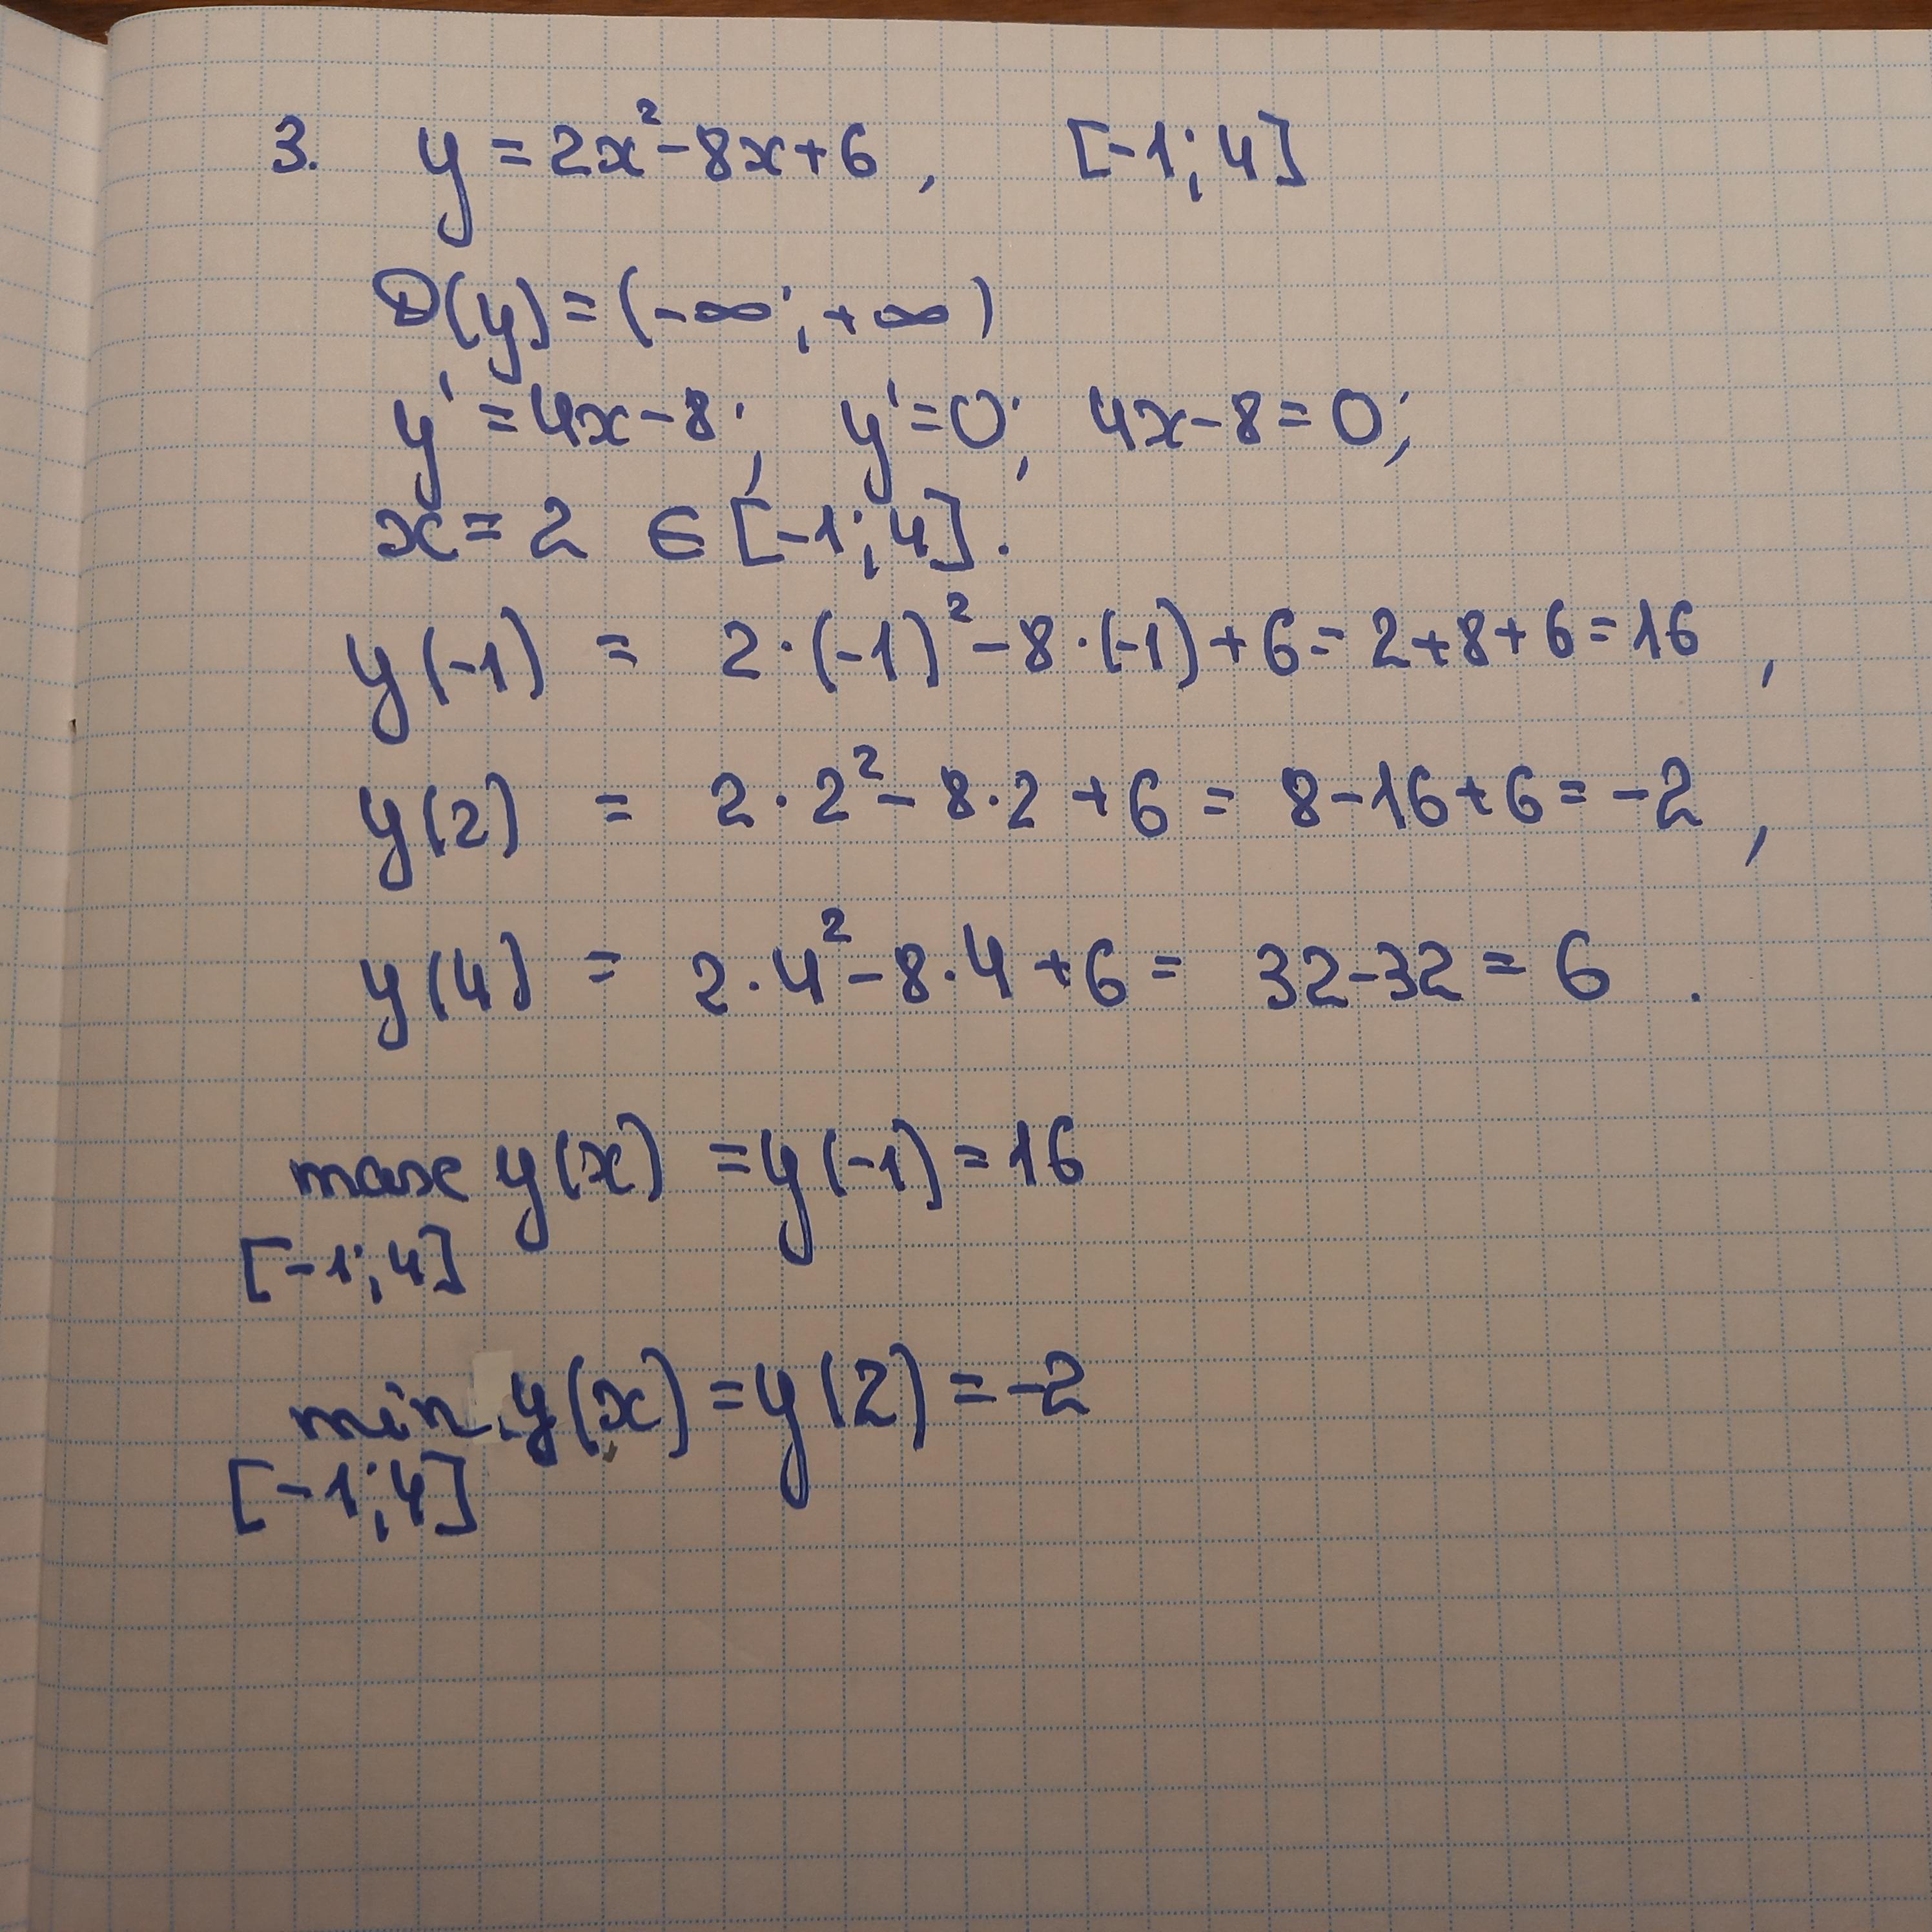 3. y = 2x² - 8x + 6 , [-1; 4]
D(y) = (-∞; +∞)
y' = 4x - 8; y' = 0; 4x - 8 = 0;
x = 2 ∈ [-1; 4].
y(-1) = 2·(-1)² - 8·(-1) + 6 = 2 + 8 + 6 = 16 ,
y(2) = 2·2² - 8·2 + 6 = 8 - 16 + 6 = -2 ,
y(4) = 2·4² - 8·4 + 6 = 32 - 32 = 6 .
max y(x) = y(-1) = 16
[-1; 4]
min y(x) = y(2) = -2
[-1; 4]